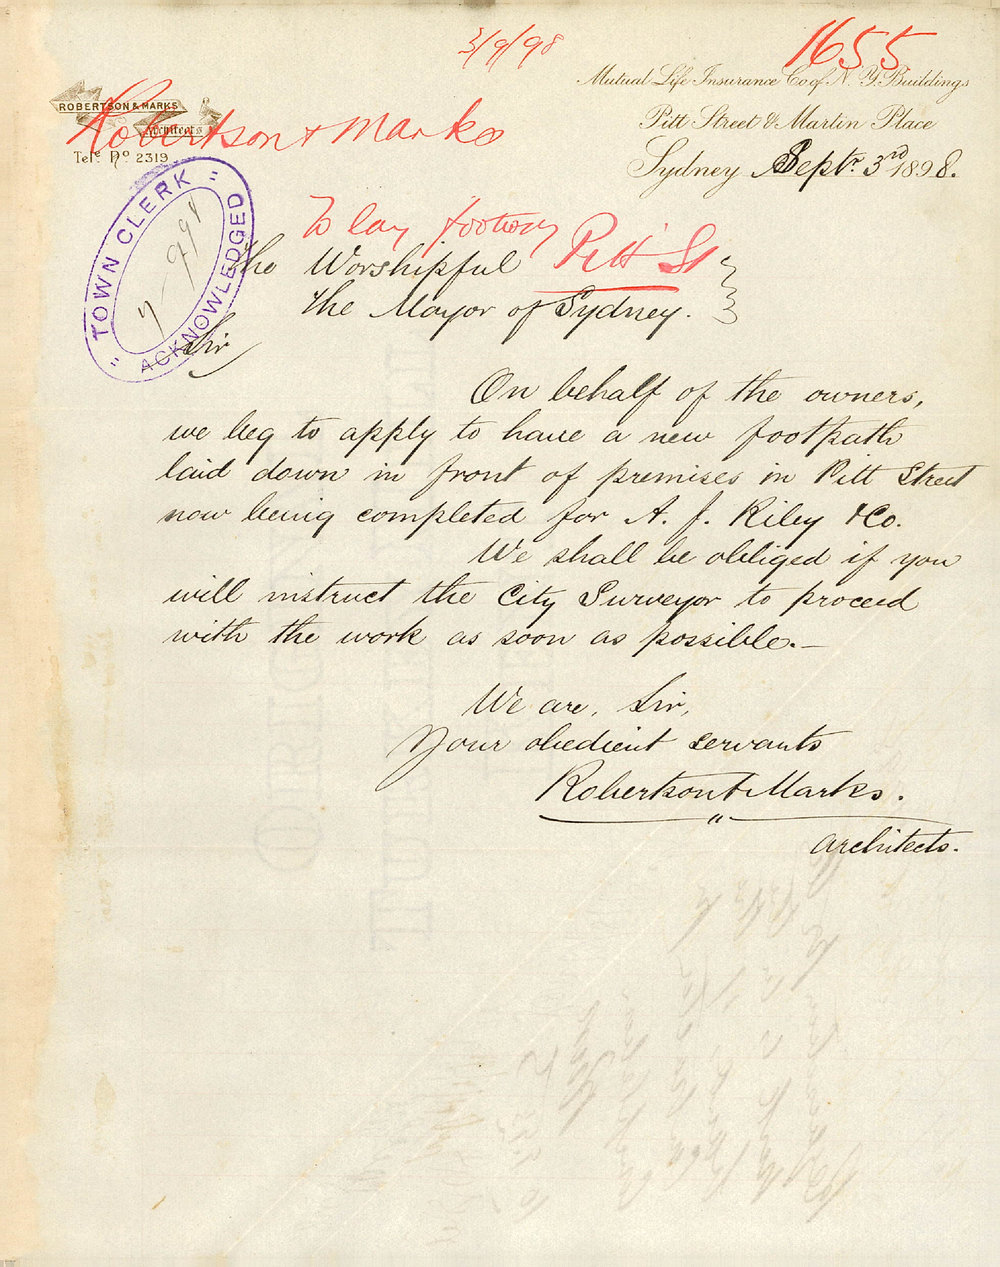 3/9/98
1655
Mutual Life Insurance Co of N. Y. Buildings
Pitt Street & Martin Place
Sydney Septr. 3rd 1898.
ROBERTSON & MARKS
Architects
Tele. No. 2319
Robertson & Marks
To lay footway Pitt St
TOWN CLERK
ACKNOWLEDGED
The Worshipful
The Mayor of Sydney.
Sir
On behalf of the owners,
we beg to apply to have a new footpath
laid down in front of premises in Pitt Street
now being completed for A. J. Riley & Co.
We shall be obliged if you
will instruct the City Surveyor to proceed
with the work as soon as possible.—
We are, Sir,
Your obedient servants
Robertson & Marks.
Architects.